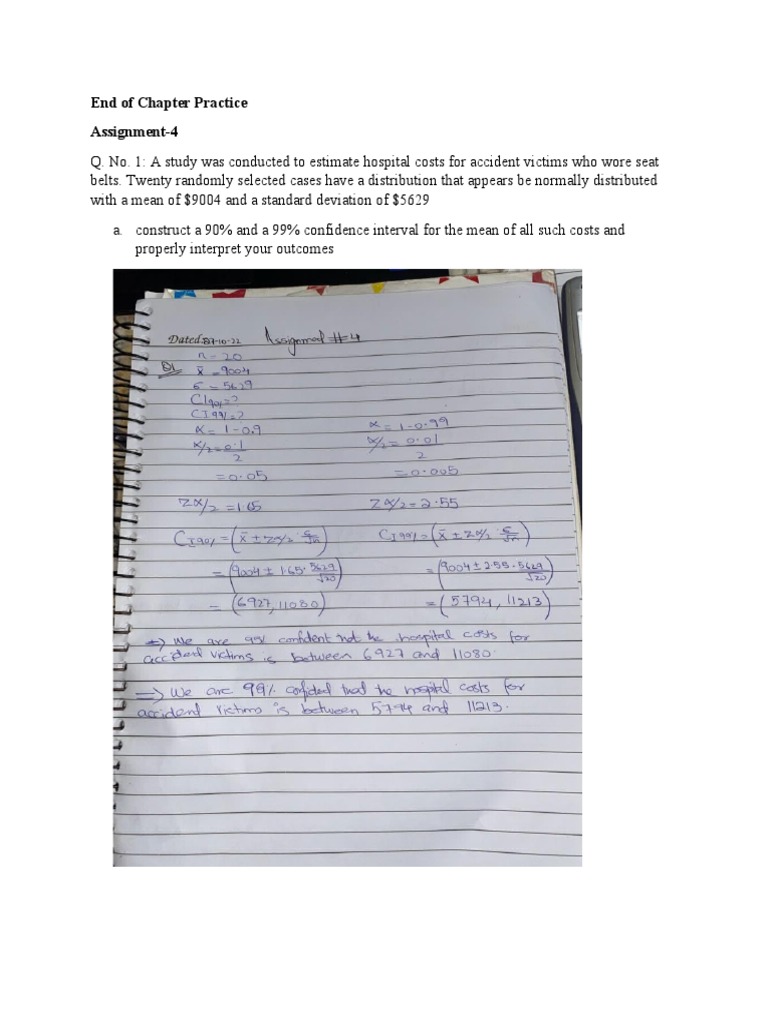 End of Chapter Practice
Assignment-4
Q. No. 1: A study was conducted to estimate hospital costs for accident victims who wore seat
belts. Twenty randomly selected cases have a distribution that appears be normally distributed
with a mean of $9004 and a standard deviation of $5629
a. construct a 90% and a 99% confidence interval for the mean of all such costs and
properly interpret your outcomes
Dated: 27-10-22 Assignment #4
n = 20
Q1 x̄ = 9004
σ = 5629
CI 90% = ?
CI 99% = ?
α = 1-0.9 α = 1-0.99
α/2 = 0.1/2 α/2 = 0.01/2
= 0.05 = 0.005
Zα/2 = 1.65 Zα/2 = 2.55
CI 90% = (x̄ ± Zα/2 · σ/√n) CI 99% = (x̄ ± Zα/2 · σ/√n)
= (9004 ± 1.65 · 5629/√20) = (9004 ± 2.55 · 5629/√20)
= (6927, 11080) = (5794, 11213)
=> We are confident the hospital costs for
accident victims is between 6927 and 11080.
=> We are 99% confident that the hospital costs for
accident victims is between 5794 and 11213.